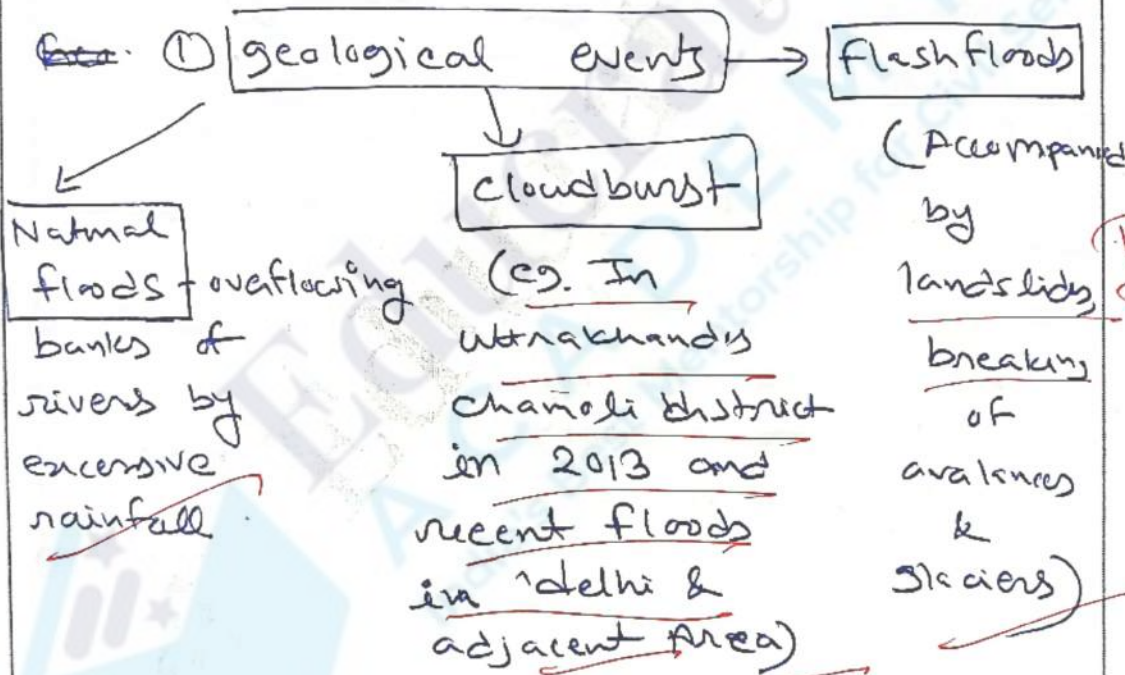 ① geological events → flash floods
Natural
floods - overflowing
banks of
rivers by
excessive
rainfall.
cloudburst
(eg. In
uttrakhand's
chamoli district
in 2013 and
recent floods
in delhi &
adjacent Area)
(Accompanied
by
landslides
breaking
of
avalances
&
glaciers)
Educrat
ACADEM
Mentorship for Civil Ser